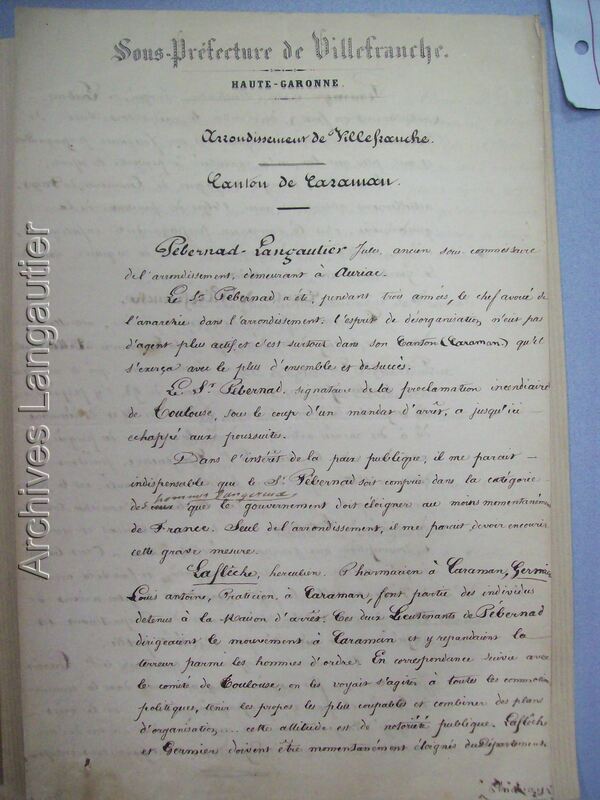 Sous-Préfecture de Villefranche.
HAUTE-GARONNE.
Arrondissement de Villefranche.
Canton de Caraman.
Pébernad-Langautier Jules, ancien sous commissaire
de l'arrondissement, demeurant à Auriac.
Le Sr Pébernad a été, pendant trois années, le chef avoué de
l'anarchie dans l'arrondissement. l'esprit de désorganisation n'eut pas
d'agent plus actif, et c'est surtout dans son Canton (Caraman) qu'il
s'exerça avec le plus d'ensemble et de succès.
Le Sr Pébernad, signataire de la proclamation incendiaire
de Toulouse, sous le coup d'un mandat d'arrêt, a jusqu'ici
echappé aux poursuites.
Dans l'intérêt de la paix publique, il me parait
indispensable que le Sr Pébernad soit compris dans la catégorie
hommes dangereux
des que le gouvernement doit éloigner au moins momentanément
de France. Seul de l'arrondissement, il me parait devoir encourir
cette grave mesure.
Laflèche, herculien, Pharmacien à Caraman, Germier
Louis antoine, Praticien, à Caraman, font partie des individus
detenus à la Maison d'arrêt. Ces deux Lieutenants de Pébernad
dirigeaient le mouvement à Caraman et y repandaient la
terreur parmi les hommes d'ordre. En correspondance suivie avec
le comité de Toulouse, on les voyait s'agiter à toutes les commotions
politiques, tenir les propos les plus coupables et combiner des plans
d'organisation... cette attitude est de notoriété publique. Laflèche
et Germier doivent être momentanément éloignés du Département.
Archives Langautier